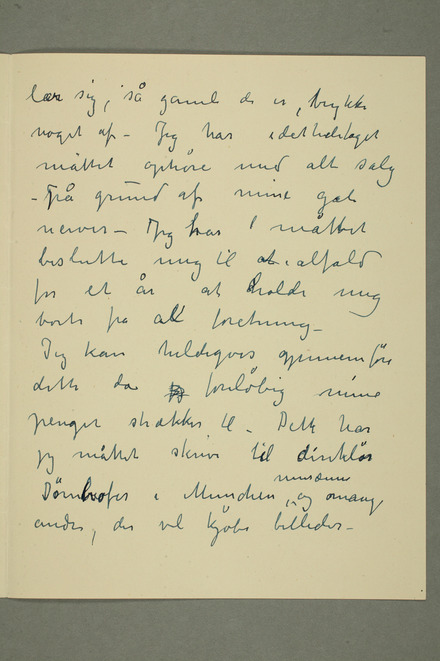 lær sig, så gamle de er, trykke
noget af – Jeg har idetheletaget
måttet ophøre med alt salg
– På grund af mine gale
nerver – Jeg har måttet
beslutte mig til at ialfald
for et år at holde mig
borte fra al forretning –
Jeg kan heldigvis gjennemføre
dette da foreløbig mine
penger strækker til. – Dette har
jeg måttet skrive til direktør
Dörnhöfer i München museum, og mange
andre, der vil kjøbe billeder –